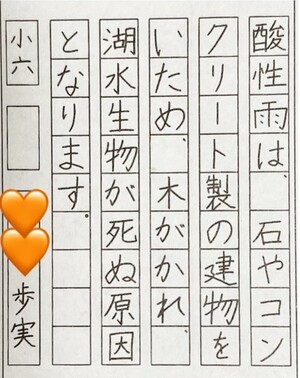 酸性雨は、石やコン
クリート製の建物を
いため、木がかれ、
湖水生物が死ぬ原因
となります。
小六 歩実